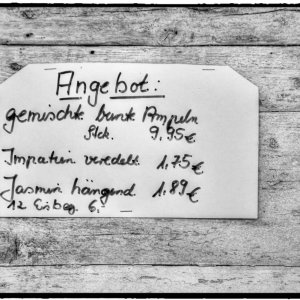 Angebot:
gemischte bunte Ampeln
Stck. 9,95€
Impatien veredelt. 1,75€
Jasmin hängend. 1,89€
12 Eisbeg. 6,-